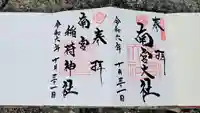 奉拝
南宮大社
令和六年十月三十一日
奉拝
南宮
稲荷神社
令和六年十月三十一日